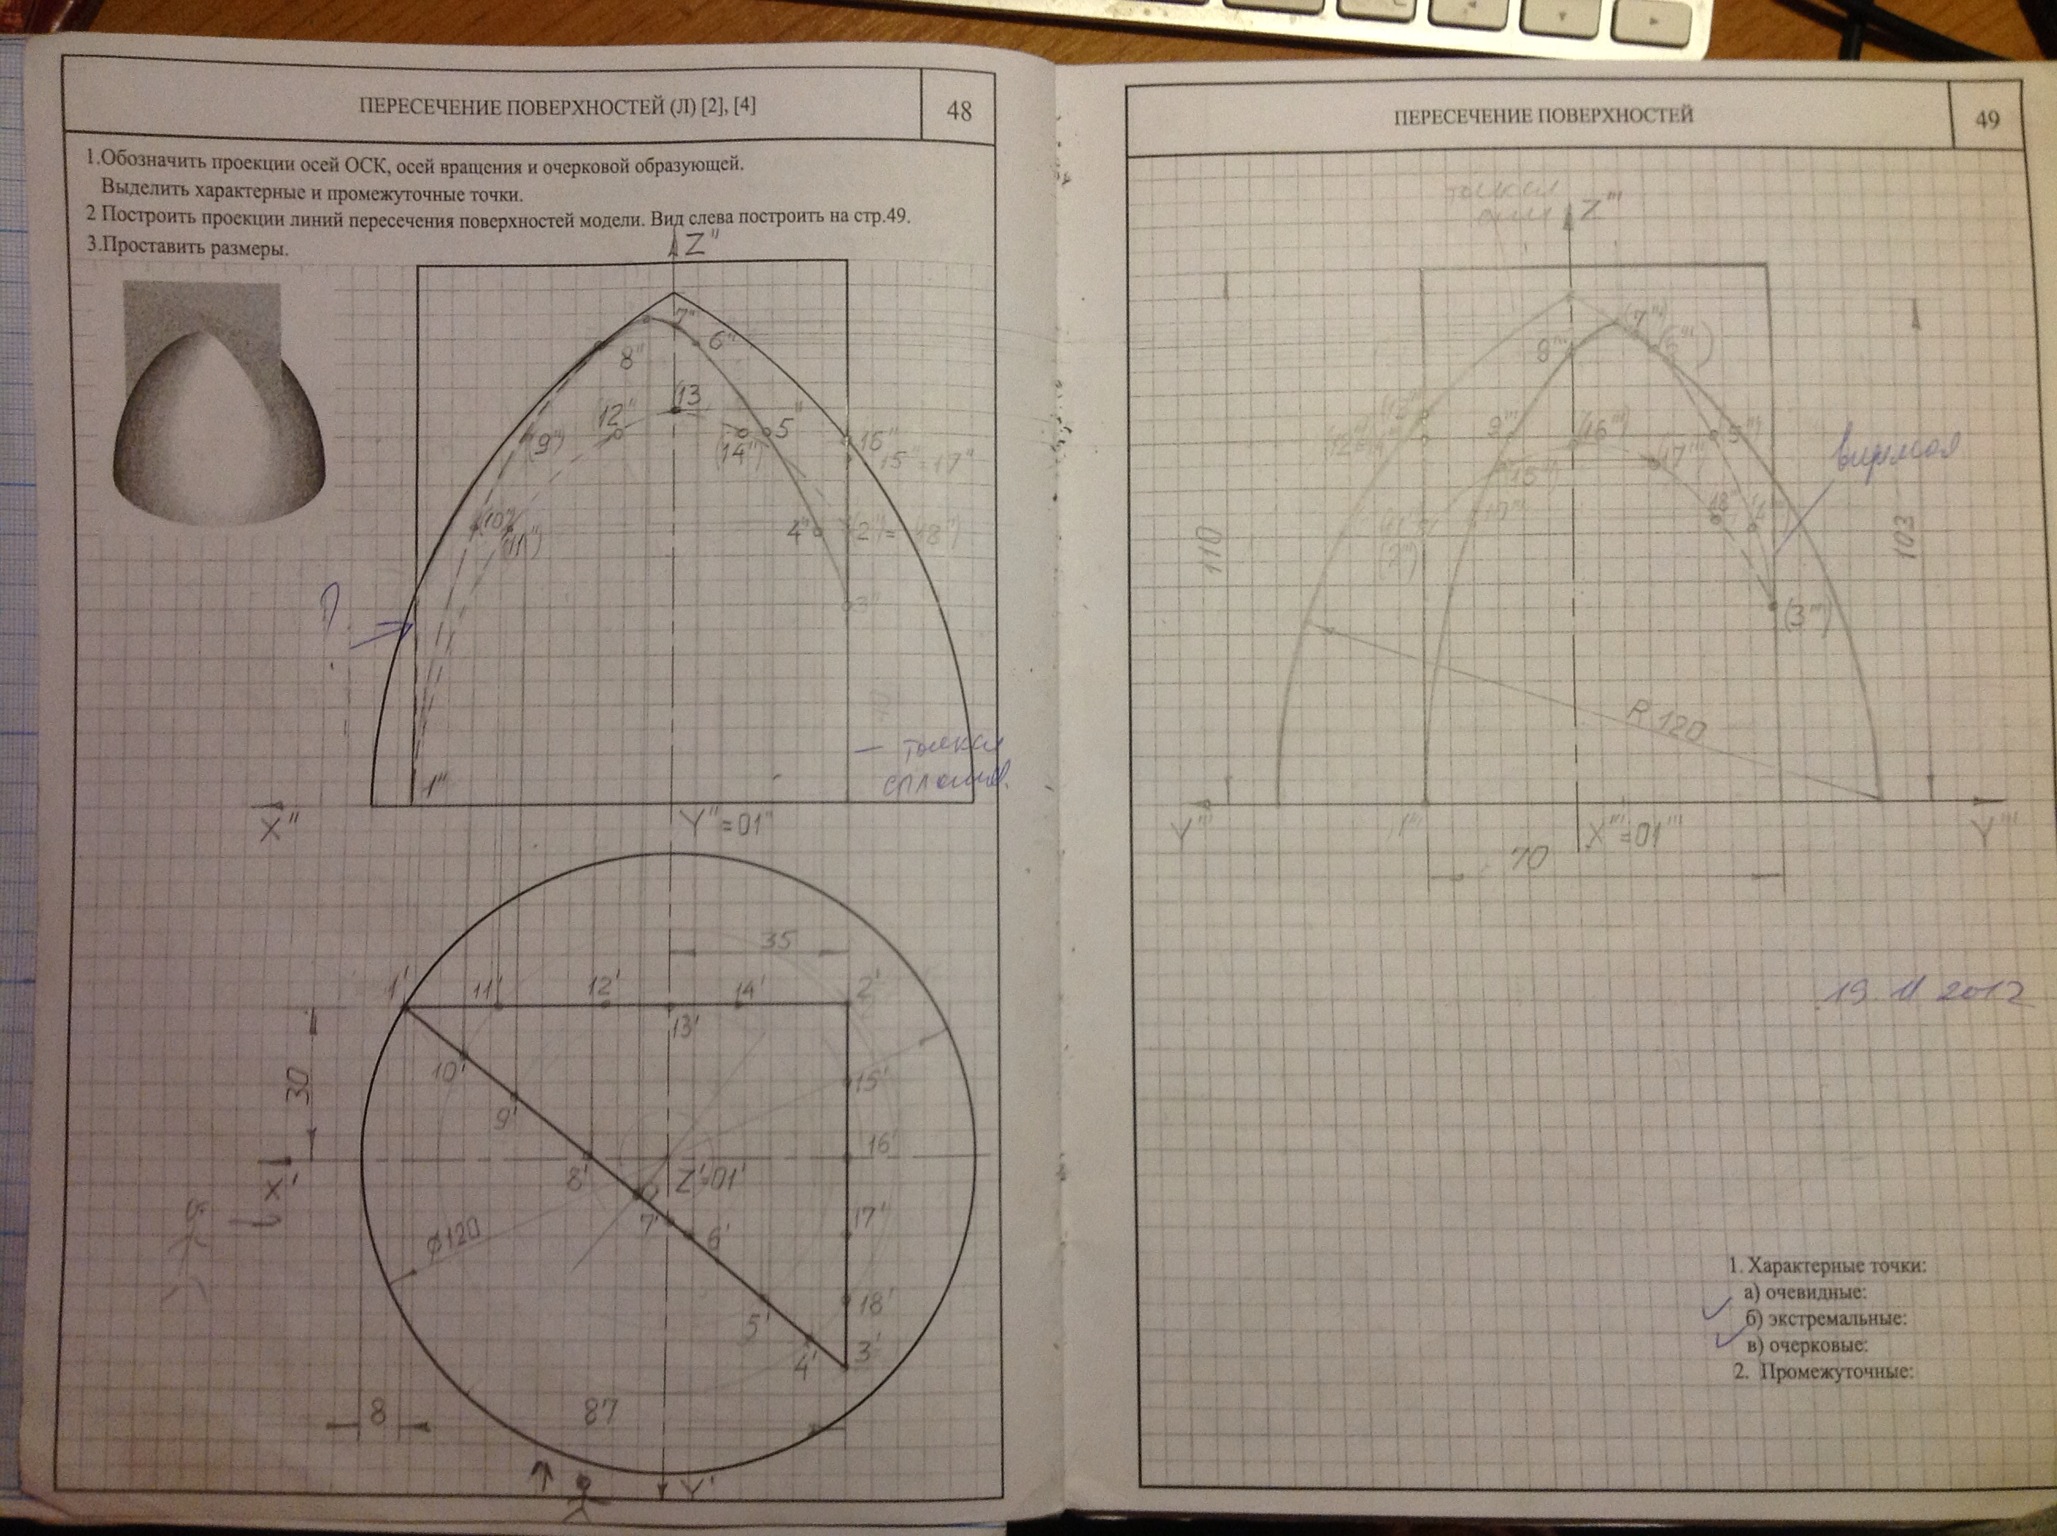 ПЕРЕСЕЧЕНИЕ ПОВЕРХНОСТЕЙ (Л) [2], [4]
48
1.Обозначить проекции осей ОСК, осей вращения и очерковой образующей.
Выделить характерные и промежуточные точки.
2 Построить проекции линий пересечения поверхностей модели. Вид слева построить на стр.49.
3.Проставить размеры.
Z"
7"
6"
8"
13
12"
5"
(9")
(14")
16"
15"=17"
(10")
(11")
4"
(2")=(18")
3"
?
— тонкая
сплошн.
1"
X"
Y"=01"
35
1'
11'
12'
14'
2'
13'
30
10'
15'
9'
16'
X'
8'
Z'=01'
7'
6'
17'
ø120
18'
5'
4'
3'
8
87
Y'
ПЕРЕСЕЧЕНИЕ ПОВЕРХНОСТЕЙ
49
тонкая
Z'''
(7''')
(6''')
8'''
9'''
(16''')
5'''
(17''')
(15''')
видимая
10'''
18'''
(2''')
110
103
(3''')
R 120
Y'''
1'''
X'''=01'''
Y'''
70
19 11 2012
1. Характерные точки:
а) очевидные:
б) экстремальные:
в) очерковые:
2. Промежуточные: